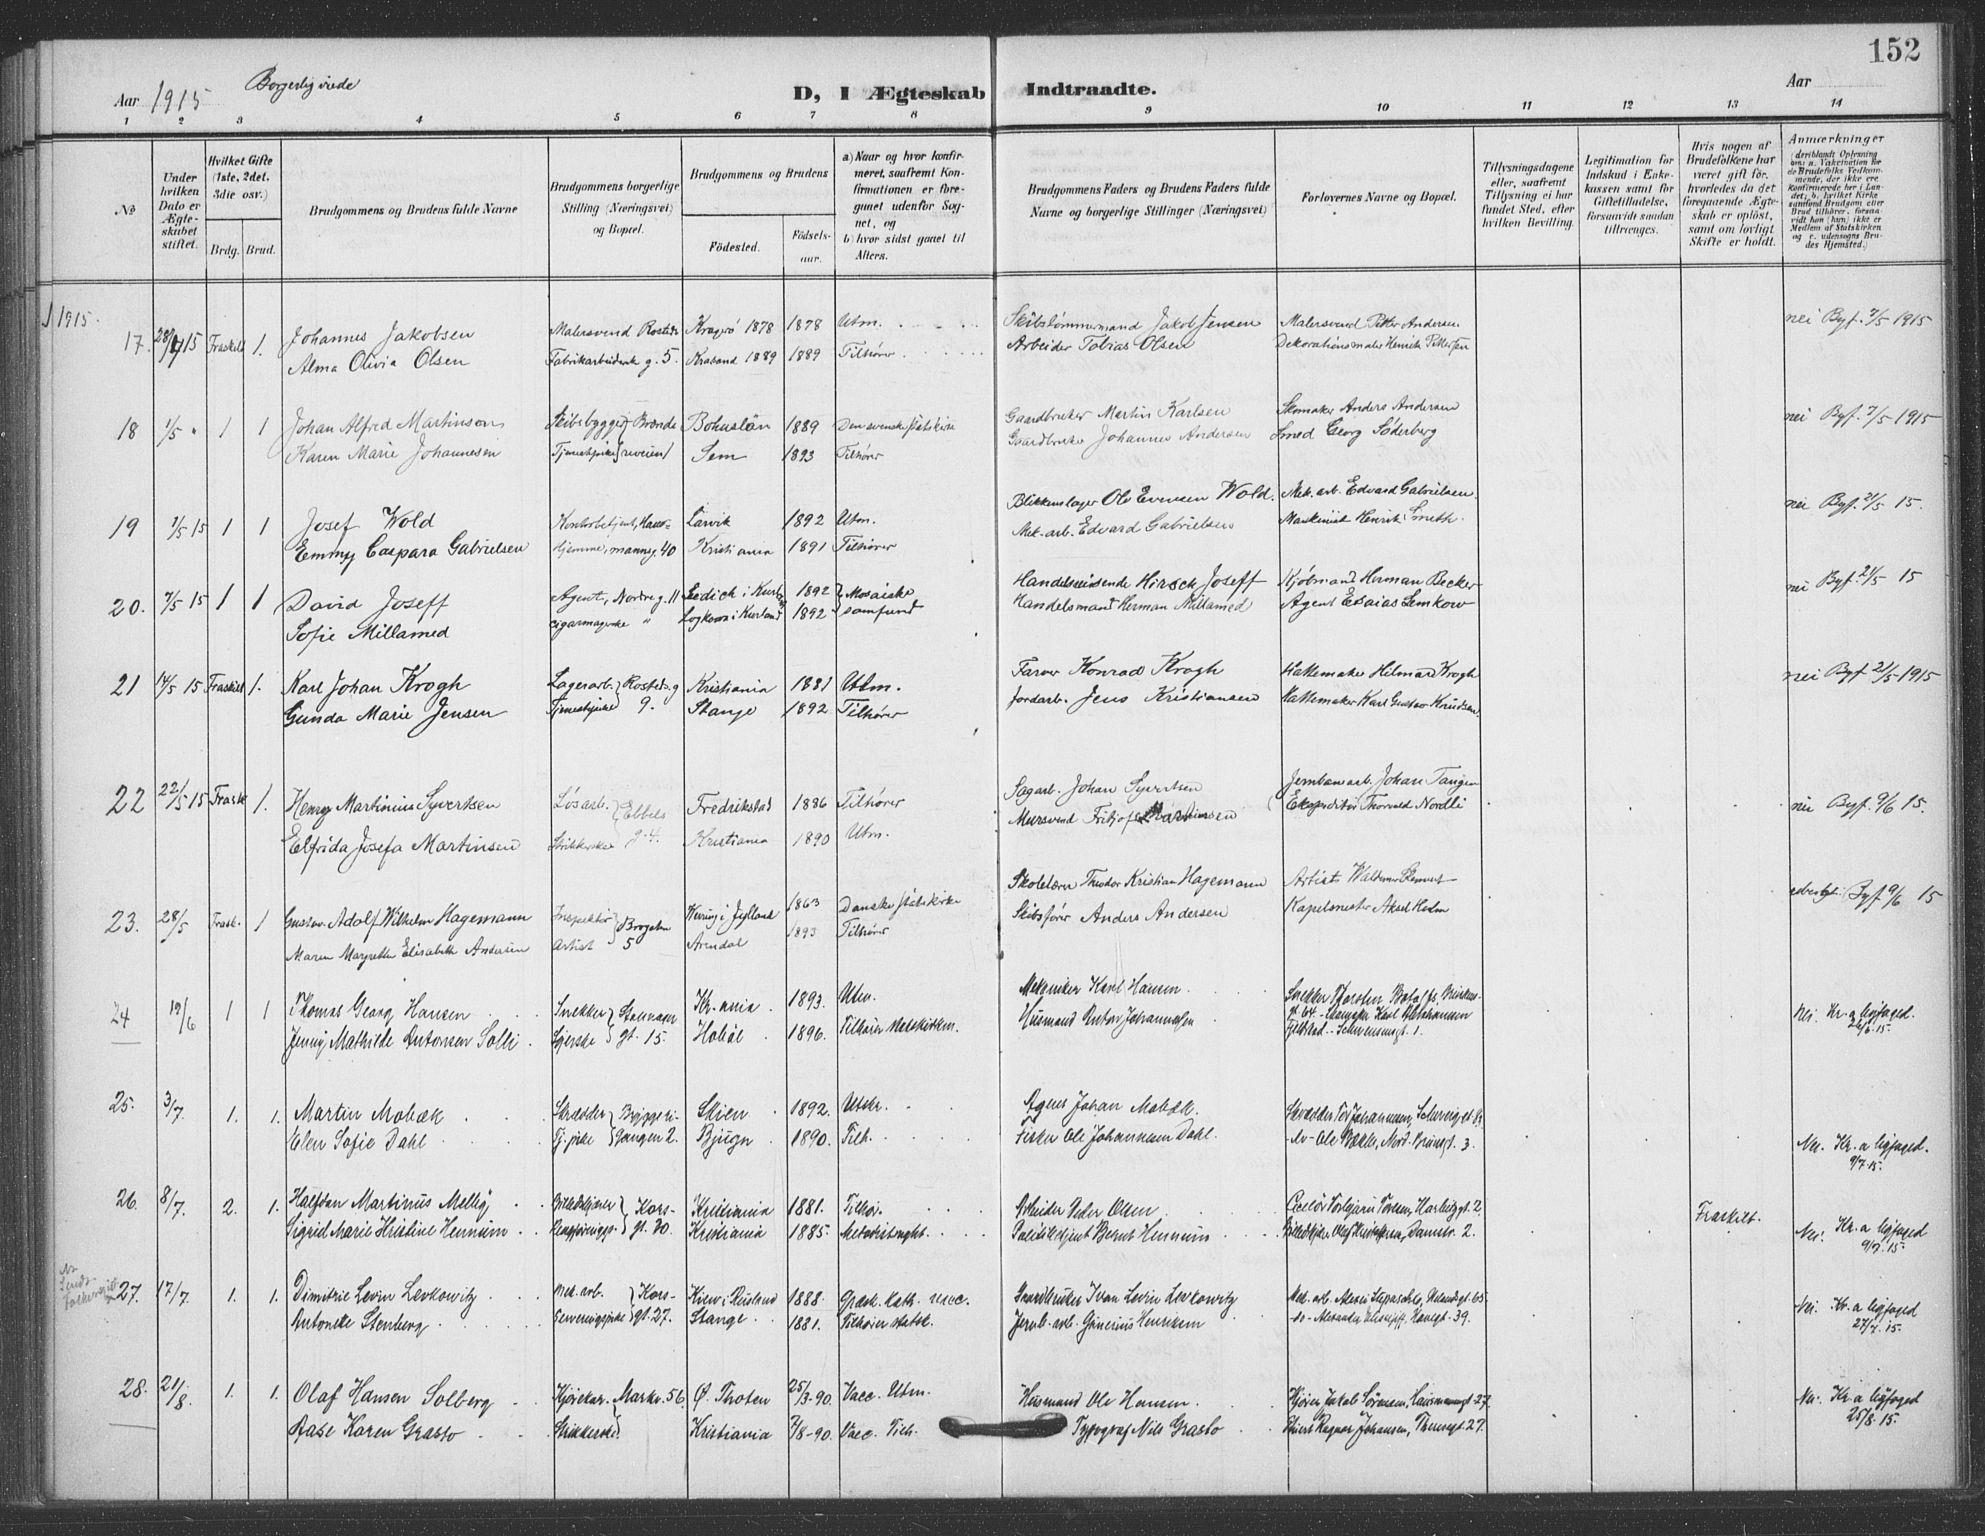 152
Aar 1915 Borgerlig viede D, I Ægteskab Indtraadte. Aar
1 2 3 4 5 6 7 8 9 10 11 12 13 14
No
Under hvilken Dato er Ægteskabet stiftet.
Hvilket Gifte (1ste, 2det, 3die osv.)
Brdg. Brud.
Brudgommens og Brudens fulde Navne
Brudgommens borgerlige Stilling (Næringsvei) og Bopæl.
Brudgommens og Brudens
Fødested. Fødselsaar.
a) Naar og hvor konfirmeret, saafremt Konfirmationen er foregaaet udenfor Sognet, og
b) hvor sidst gaaet til Alters.
Brudgommens Faders og Brudens Faders fulde Navne og borgerlige Stillinger (Næringsvei)
Forlovernes Navne og Bopæl.
Tillysningsdagene eller, saafremt Tillysning ei har fundet Sted, efter hvilken Bevilling.
Legitimation for Indskud i Enkekassen samt for Giftetilladelse, forsaavidt saadan tiltrænges.
Hvis nogen af Brudefolkene har været gift før, hvorledes da det foregaaende Ægteskab er opløst, samt om lovligt Skifte er holdt.
Anmærkninger (deriblandt Oplysning om: a. Vakcination for de Brudefolks Vedkommende, der ikke ere konfirmerede her i Landet; b. hvilket Kirkesamfund Brudgom eller Brud tilhører, forsaavidt han (hun) ikke er Medlem af Statskirken og c. udensogns Brudes Hjemsted.)
1915.
17. 15 Fraskilt 1. Johannes Jakobsen Malersvend Rosteds Kragerø 1878 1878 Utm. Skibstømmermand Jakob Jensen Malersvend Petter Andersen nei Byf. 7/5 1915
Alma Olivia Olsen Fabrikarbeiderske g. 5. Krasand 1889 1889 Tilhører Arbeider Tobias Olsen Dekorationsmaler Henrik Pettersen
18 1/5 " 1 1 Johan Alfred Martinson Skibsbygger Brænde Bohuslän 1889 Den svenske statskirke Gaardbruker Martin Karlsen Skomaker Anders Andersen nei Byf. 7/5 1915
Karen Marie Johannesen Tjenestpike Sem 1893 Tilhører Gaardbruker Johannes Andersen Smed Georg Söderberg
19 7/5 15 1 1 Josef Wold Kontorbetjent, Haus- Larvik 1892 Utm. Blikkenslager Ole Evensen Wold. Mek. arb. Edvard Gabrielsen nei Byf. 21/5 15.
Emmy Caspara Gabrielsen Hjemme, mannsg. 40 Kristiania 1891 Tilhører Mek. arb. Edvard Gabrielsen Maskinist Henrik Smeth.
20. 7/5 15 1 1 David Joseff Agent, Nordre g. 11 1892 Mosaiske Handelsreisende Hirsch Joseff Kjøbmand Herman Becker nei Byf. 21/5 15
Sofie Millamed cigarmagerske " 1892 samfund Handelsmand Herman Millamed Agent Esaias Lemkow
21 14/5 15 Fraskilt 1. Karl Johan Krogh Lagerarb. Rosteds g Kristiania 1881 Utm. Farver Konrad Krogh Hattemaker Hilmar Krogh nei Byf. 21/5 1915
Gunda Marie Jensen Tjenestpike 9. Stange 1892 Tilhører Jordarb. Jens Kristiansen Hattemaker Karl Gustav Knudsen.
22 22/5 15 Frask 1. Henry Martinius Syvertsen Løsarb. Ebbels Fredrikstad 1886 Tilhører Sagarb. Johan Syvertsen Jernbanearb. Johan Tangen nei Byf. 9/6 15.
Elfrida Josefa Martinsen Strikkerske g. 4. Kristiania 1890 Utm. Mursvend Fritjof Martinsen Ekspeditør Thorvald Nordli
23. 28/5 Frask. 1 Gustav Adolf Wilhelm Hagemann Inspektør Brogaten i Jylland 1863 Danske statskirke Skolelærer Theodor Kristian Hagemann Artist Waldemar Byf 9/6 15
Maren Margrethe Elisabeth Andersen Artist 5 Arendal 1893 Tilhører Skibsfører Anders Andersen Kapelmester Aksel Holm
24 19/6 1 1 Thomas Georg Hansen Snekker Kr.ania 1893. Utm. Mekaniker Karl Hansen Snekker Thorsten
Jenny Mathilde Antonsen Solli Syerske gt. 15. Hobøl 1896. Tilhører Statskirken. Husmand Anton Johannesen gt. 64 - Skomaker Karl Nei. Kr.a byfoged. 26/6.15.
25. 3/7. 1. 1. Martin Mobæk Skrædder Byggeri- Skien 1892. Utskr. Agent Johan Mobæk. Skrædder Tor Johannesen, Schweigst.
Elen Sofie Dahl Tj. pike gangen 2. Bjugn 1890. Tilh. Fisker Ole Johannesen Dahl. -do- Ole 3. Nei. Kr.a byfoged. 9/7.15.
26. 8/7. 2. 1. Halfdan Martinus Melby Billedskjærer Kors- Kristiania 1881. Tilhør. Arbeider Peder Olsen Torbjørn Fraskilt.
Sigrid Marie Kristine Hennum Rengjøringsp. gt. 20. Kristiania 1885. Metodistmght. Politibetjent Bernt Hennum Damstr. 2. Nei. Kr.a byfoged 9/7.15.
27. 17/7. 1. 1. Dimitrie Levin Levkowitz Mek. arb. Kors- Kiew i Rusland 1888. Græsk. Kath. vacc. Gaardbruker Ivan Levin Levkowitz Mek. arb. Alexei
Antonette Stenberg gt. 27. Stange 1881. Tilhører statsk. Jernb. arb. Gunerius Henriksen -do- Alexander 39. Nei. Kr.a byfoged 27/7.15.
28. 21/8. 1. 1. Olaf Hansen Solberg Kjørekar. Markv. 56 Ø. Thoten 25/3-90. Vacc. Utm. Husmand Ole Hansen Kjører Jakob Sørensen, 27. Nei. Kr.a byfoged 25/8.15.
Aase Karen Grasto Strikkerske. Kristiania 7/8-90. Vacc. Tilh. Typograf Nils Grasto Ragnar Johansen, 27.